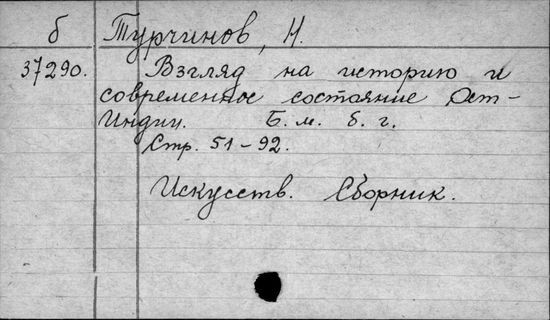 б Турчинов, Н.
37290. Взгляд на историю и
современное состояние Ост-
Индии. Б. м. б. г.
Стр. 51-92.
Искусств. Сборник.